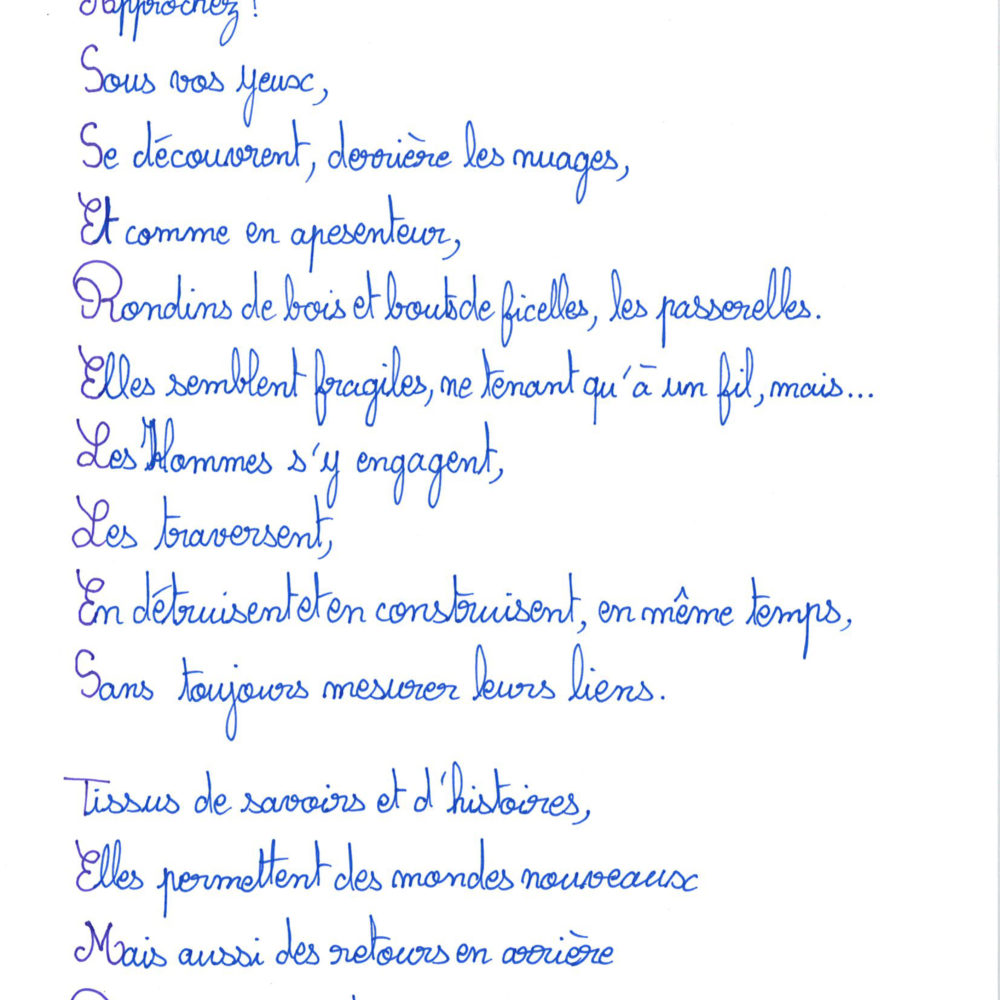 Sous vos yeux,
Se découvrent, derrière les nuages,
Et comme en apesenteur,
Rondins de bois et bouts de ficelles, les passerelles.
Elles semblent fragiles, ne tenant qu'à un fil, mais...
Les Hommes s'y engagent,
Les traversent,
En détruisent et en construisent, en même temps,
Sans toujours mesurer leurs liens.
Tissus de savoirs et d'histoires,
Elles permettent des mondes nouveaux
Mais aussi des retours en arrière